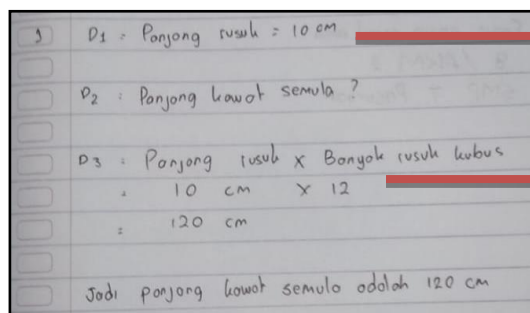 1 D1 : Panjang rusuk = 10 cm
D2 : Panjang kawat semula ?
D3 : Panjang rusuk X Banyak rusuk kubus
= 10 cm X 12
= 120 cm
Jadi panjang kawat semula adalah 120 cm